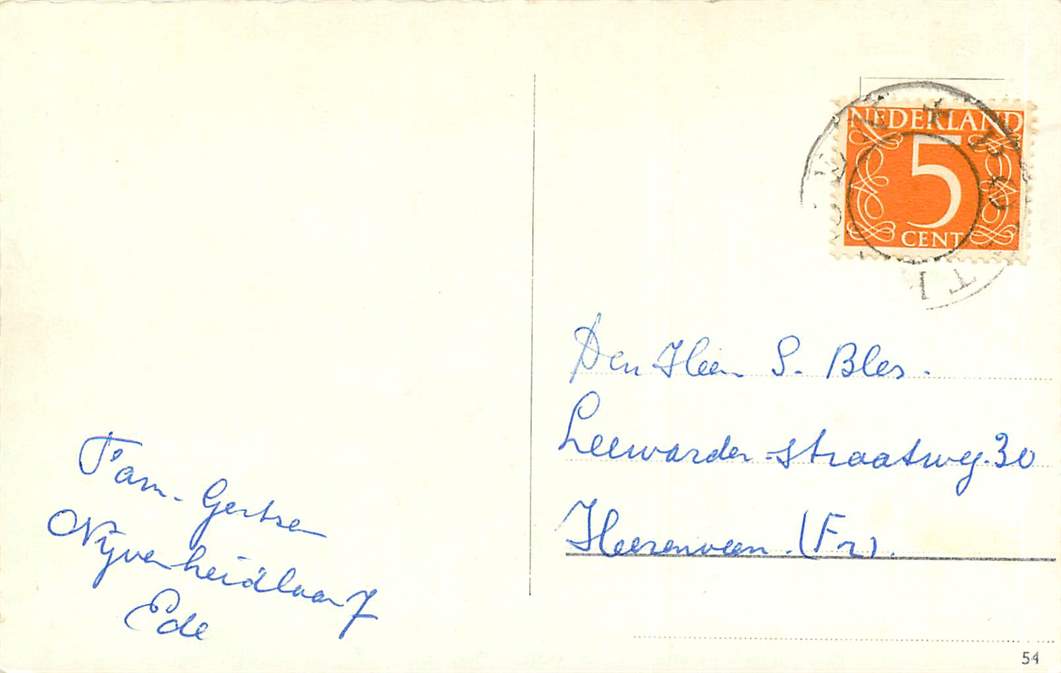 NEDERLAND
5
CENT
Den Heer S. Bles.
Leeuwarder-straatweg 30
Heerenveen. (Fr).
Fam. Gertsen
Nijverheidlaan 7
Ede
54